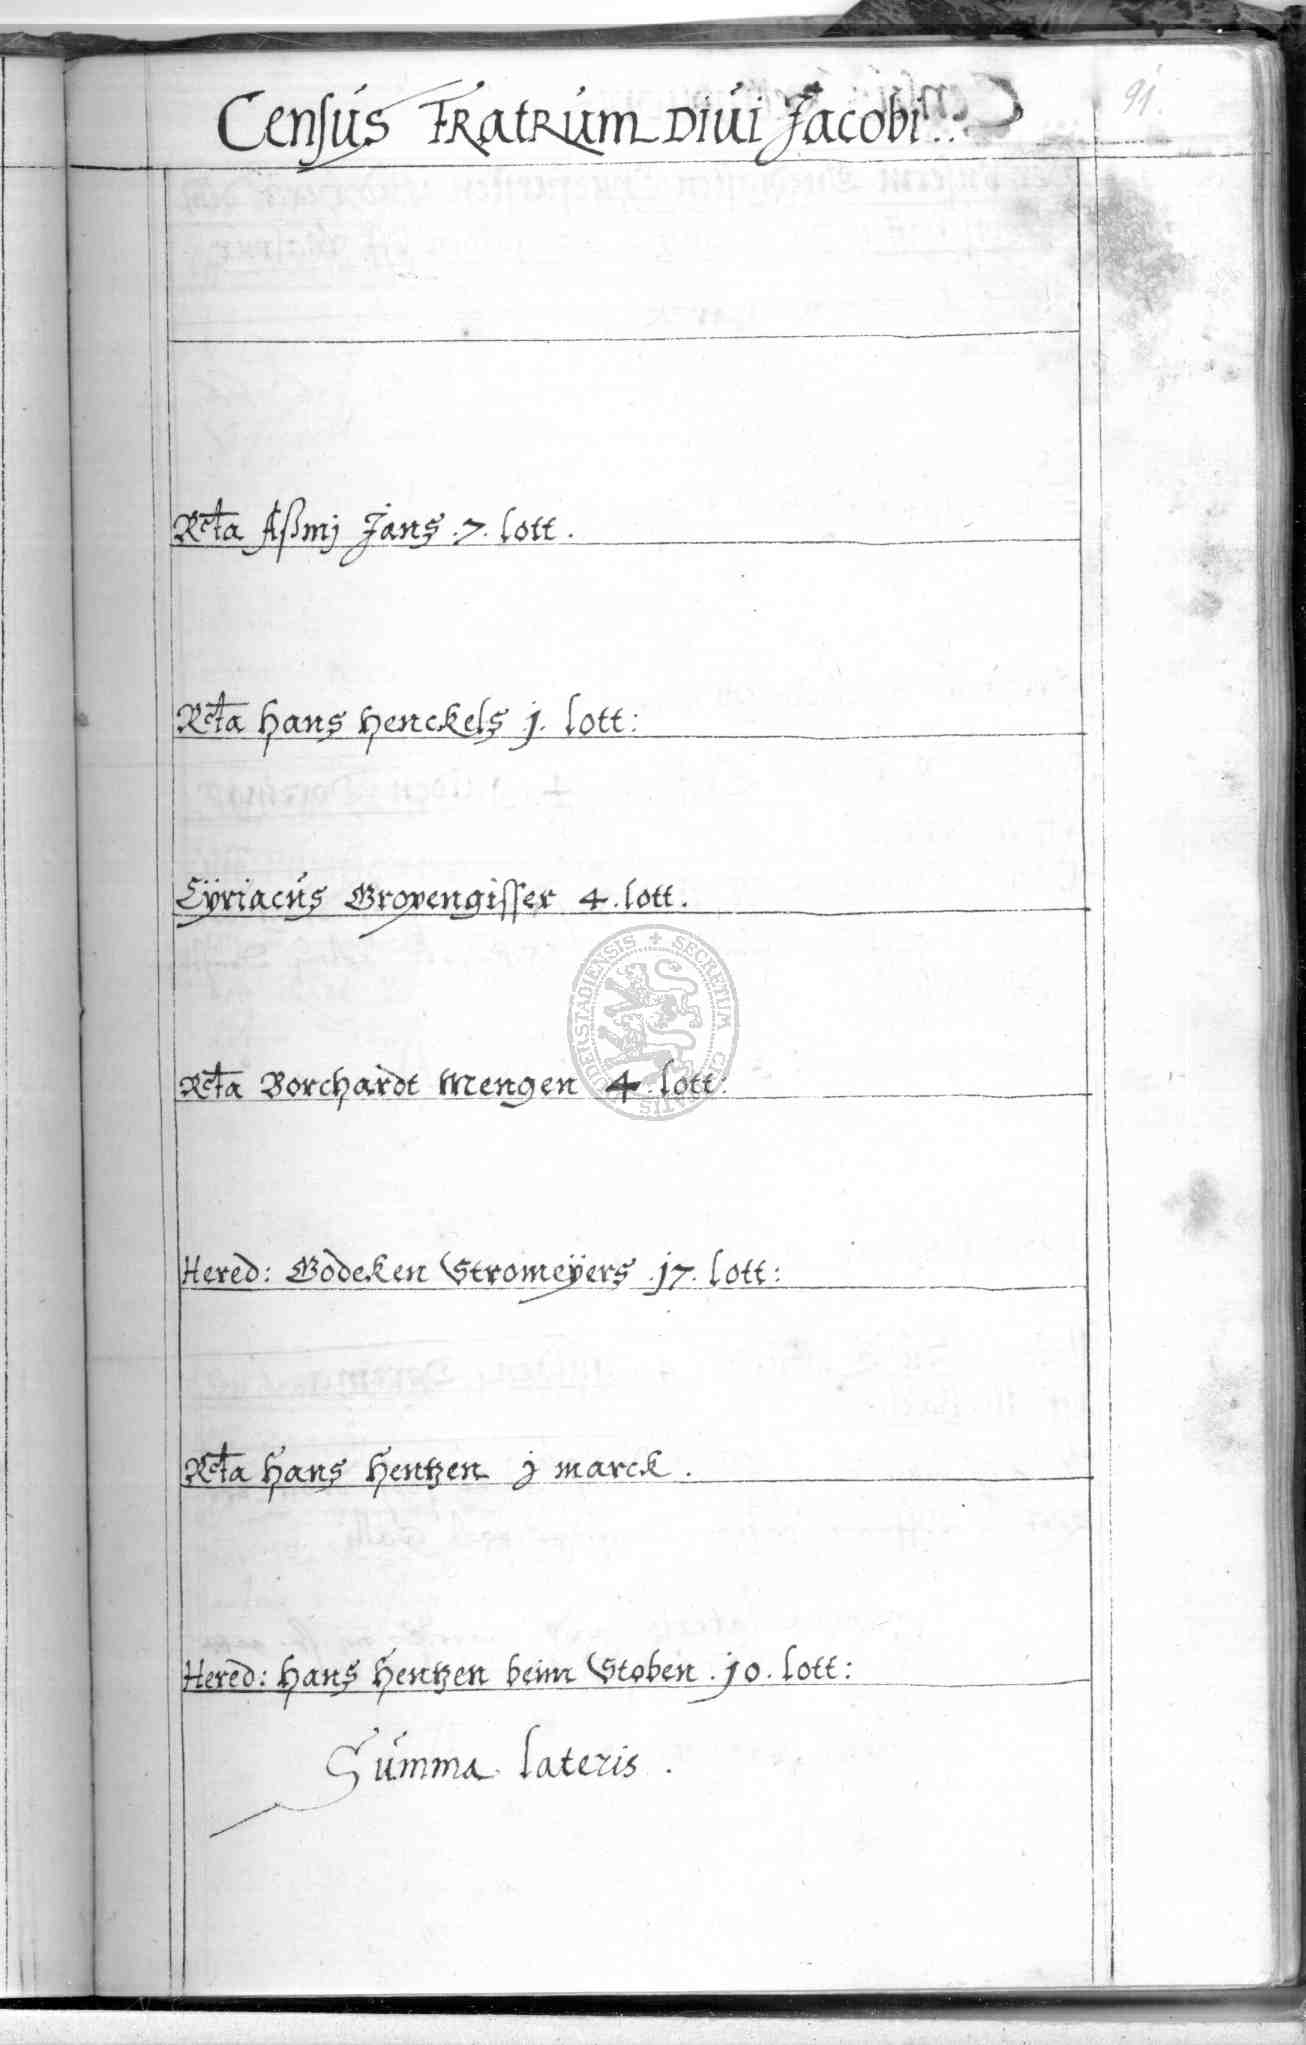 Censús Fratrúm Diui Jacobi
91.
Rcta Aßmj Jans .7. lott.
Rcta Hans Henckels .j. lott:
Cÿriacús Gropengisser 4. lott.
Rcta Borchardt Mengen 4. lott:
Hered: Bodeken Stromeÿers .j7. lott:
Rcta Hans Hentzen j marck.
Hered: Hans Hentzen beim Stoben .j0. lott:
Súmma lateris.
SECRETUM